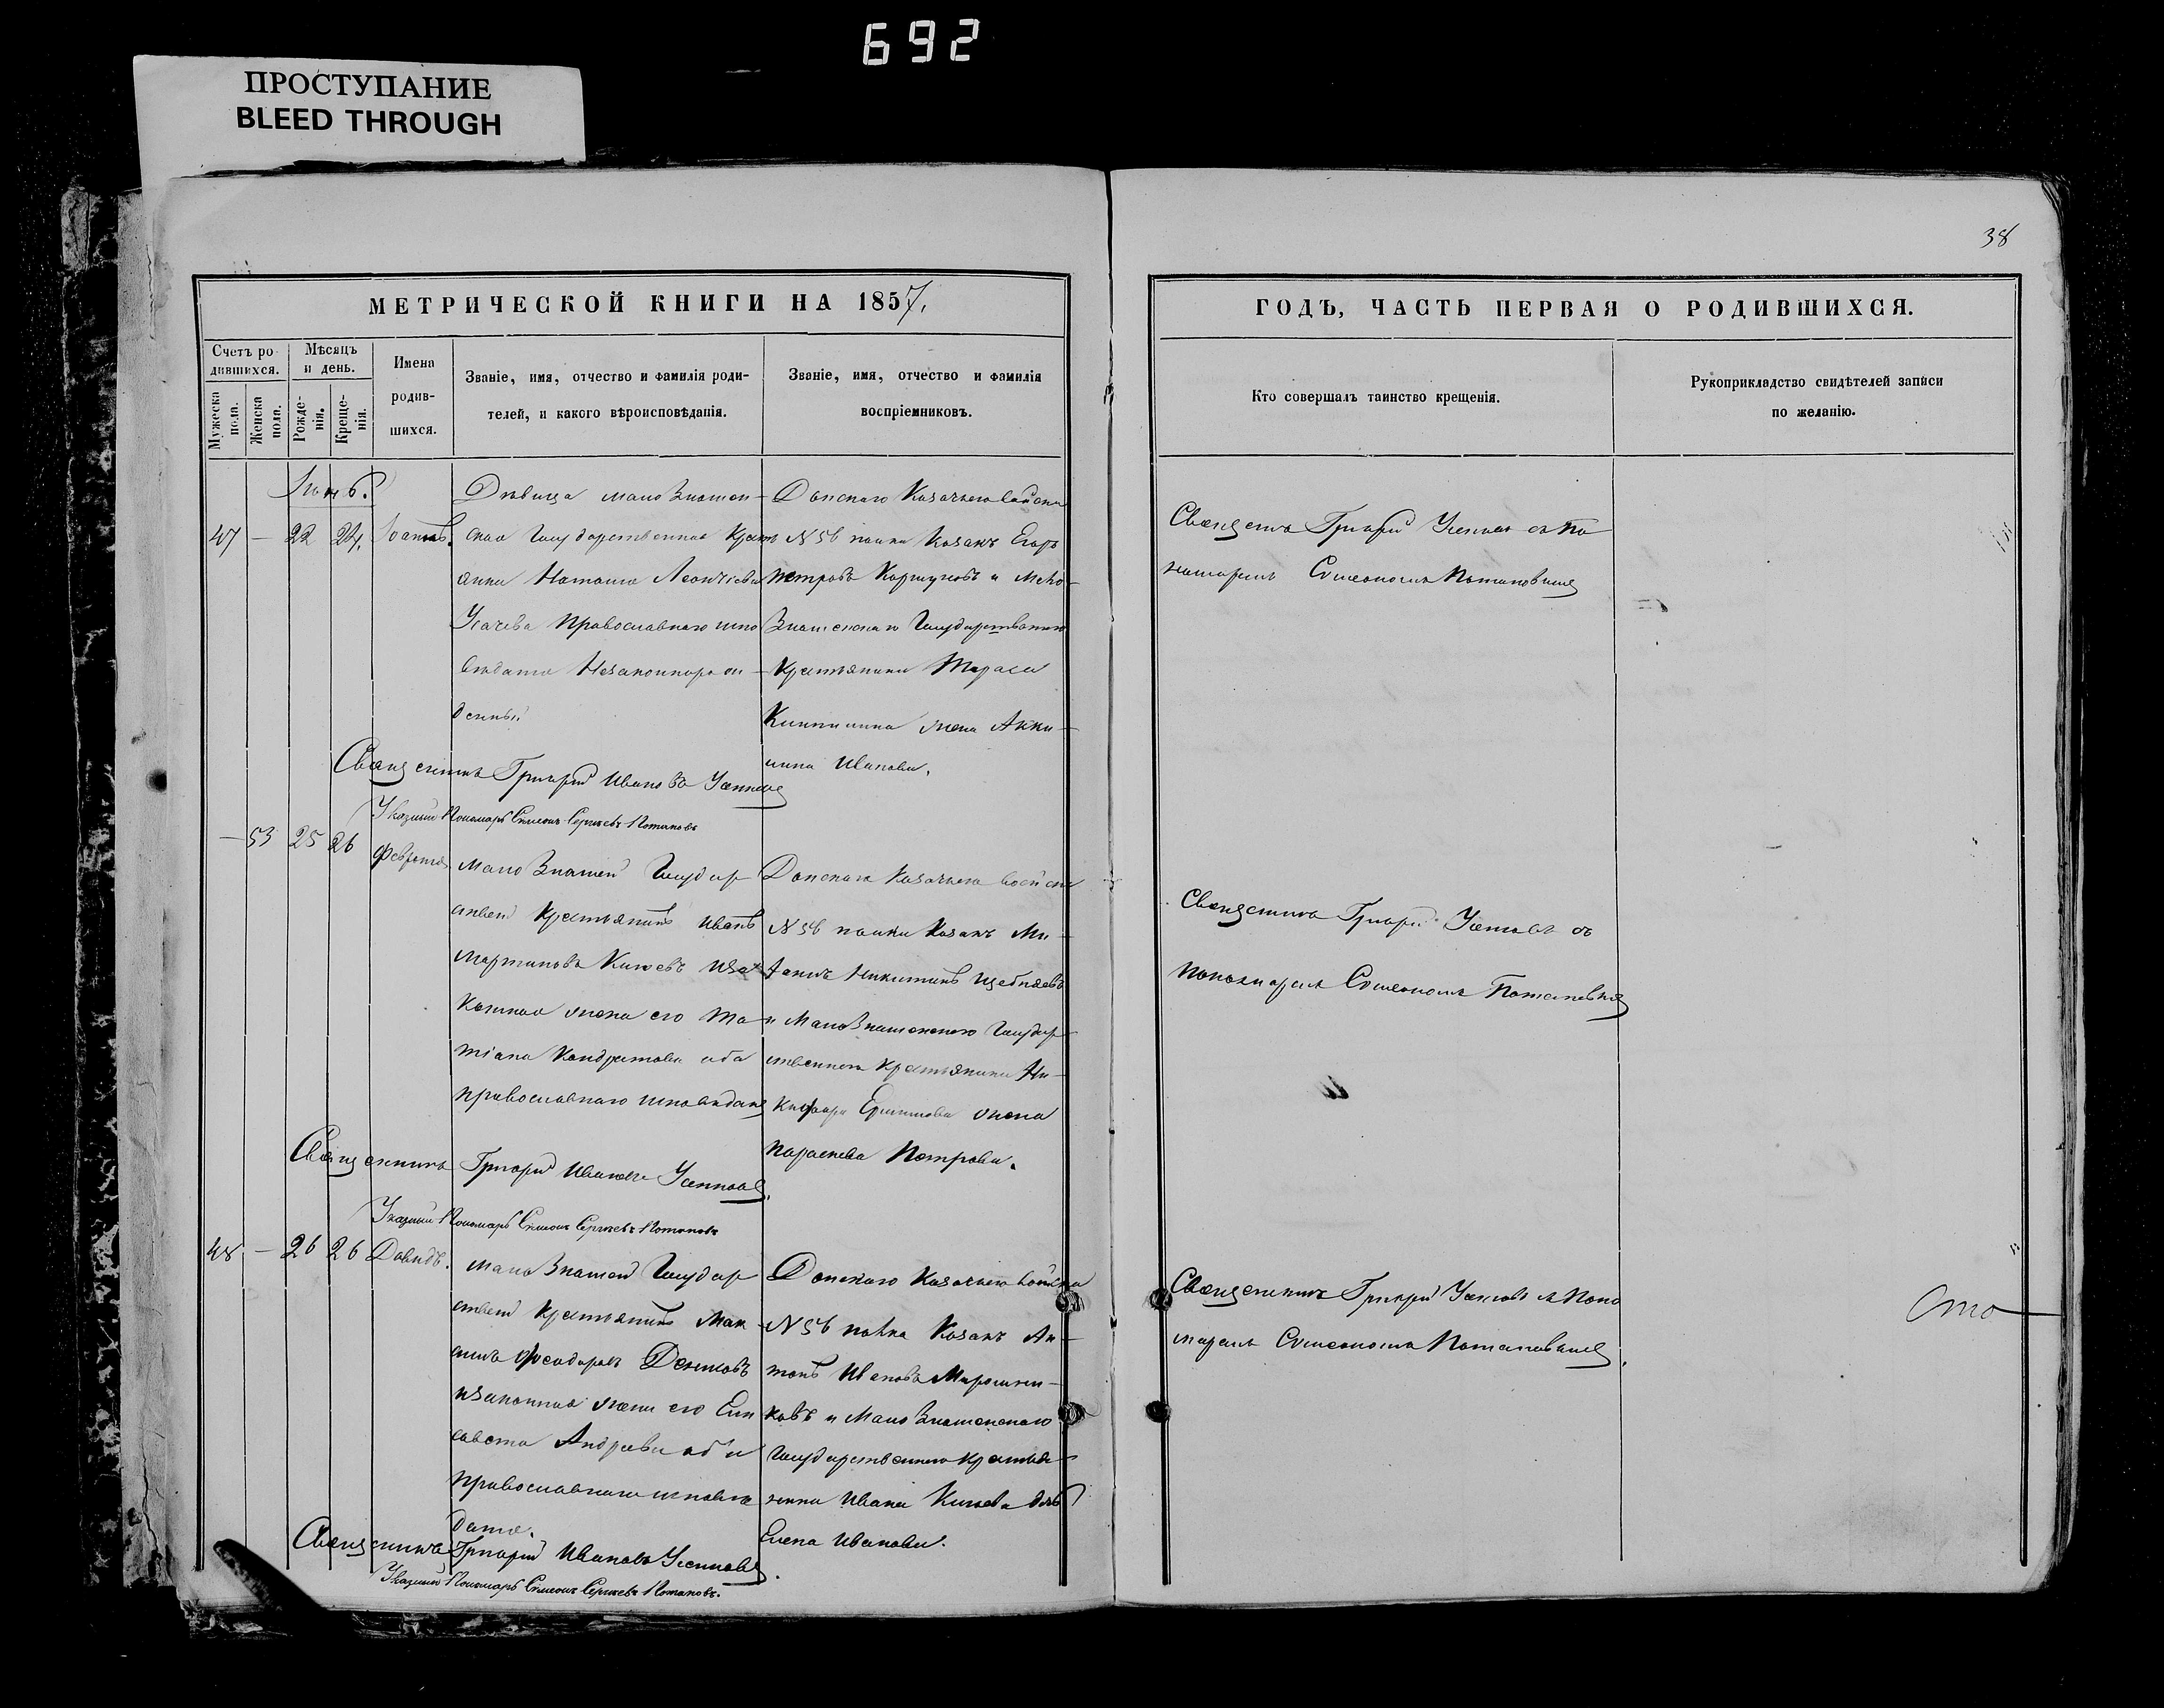 692
ПРОСТУПАНИЕ
BLEED THROUGH
38
МЕТРИЧЕСКОЙ КНИГИ НА 1857.
Счетъ ро-
дившихся.
Мужеска
пола.
Женска
пола.
Мѣсяцъ
и день.
Рожде-
нія.
Креще-
нія.
Имена
родив-
шихся.
Званіе, имя, отчество и фамилія роди-
телей, и какого вѣроисповѣданія.
Званіе, имя, отчество и фамилія
воспріемниковъ.
ГОДЪ, ЧАСТЬ ПЕРВАЯ О РОДИВШИХСЯ.
Кто совершалъ таинство крещенія.
Рукоприкладство свидѣтелей записи
по желанію.
47 — 22 24.
Дѣвица мало Знамен-
ская Государственная Крестъ
янка Наталія Леонтіева
Усачева Православнаго испо
вѣданія Незаконнорож-
денный
Донскаго Казачьяго войска
N 56 полка Казакъ Егоръ
Петровъ Коршуновъ и Мало-
Знаменскаго Государственнаго
Крестьянина Тараса
жена Аки-
лина Иванова.
Священникъ Григорій Успенскій съ По
номаремъ Симеономъ Потаповымъ
Священникъ Григорій Ивановъ
Указный Пономарь Симеонъ Сергѣевъ Потаповъ
— 53 25 26
мало Знамен Государ
ствен Крестьянинъ Иванъ
Мартиновъ Китевъ и за
конная жена его Та
тіана Кондратова оба
православнаго исповѣданія
Донскаго Казачьяго войска
N 56 полка Казакъ Ми-
Никитинъ
и Мало Знаменскаго Государ
ственнаго Крестьянина Ни-
кифора жена
Параскева Петрова.
Священникъ Григорій съ
пономаремъ Симеономъ Потаповымъ
Священникъ Григорій Ивановъ
Указный Пономарь Симеонъ Сергѣевъ Потаповъ
48 — 26 26 Давидъ.
мало Знамен Государ
ствен Крестьянинъ Мак
симъ Феодоровъ
и законная жена его Ели
савета Андреева оба
православнаго исповѣ
данія.
Донскаго Казачьяго войска
N 56 полка Казакъ Ан-
тонъ Ивановъ Мирошни-
ковъ и Мало Знаменскаго
Государственнаго крестья-
нина Ивана Китева дочь
Елена Иванова.
Священникъ Григорій съ Поно
маремъ Симеономъ Потаповымъ
Сто
Священникъ Григорій Ивановъ
Указный Пономарь Симеонъ Сергѣевъ Потаповъ.